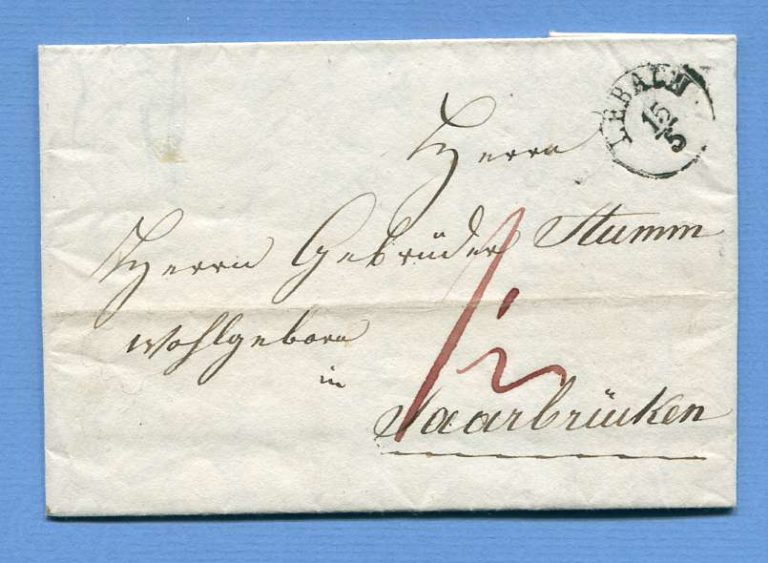 LEBACH
15
5
Herrn
Herrn Gebrüder Stumm
wohlgeborn
in
Saarbrücken